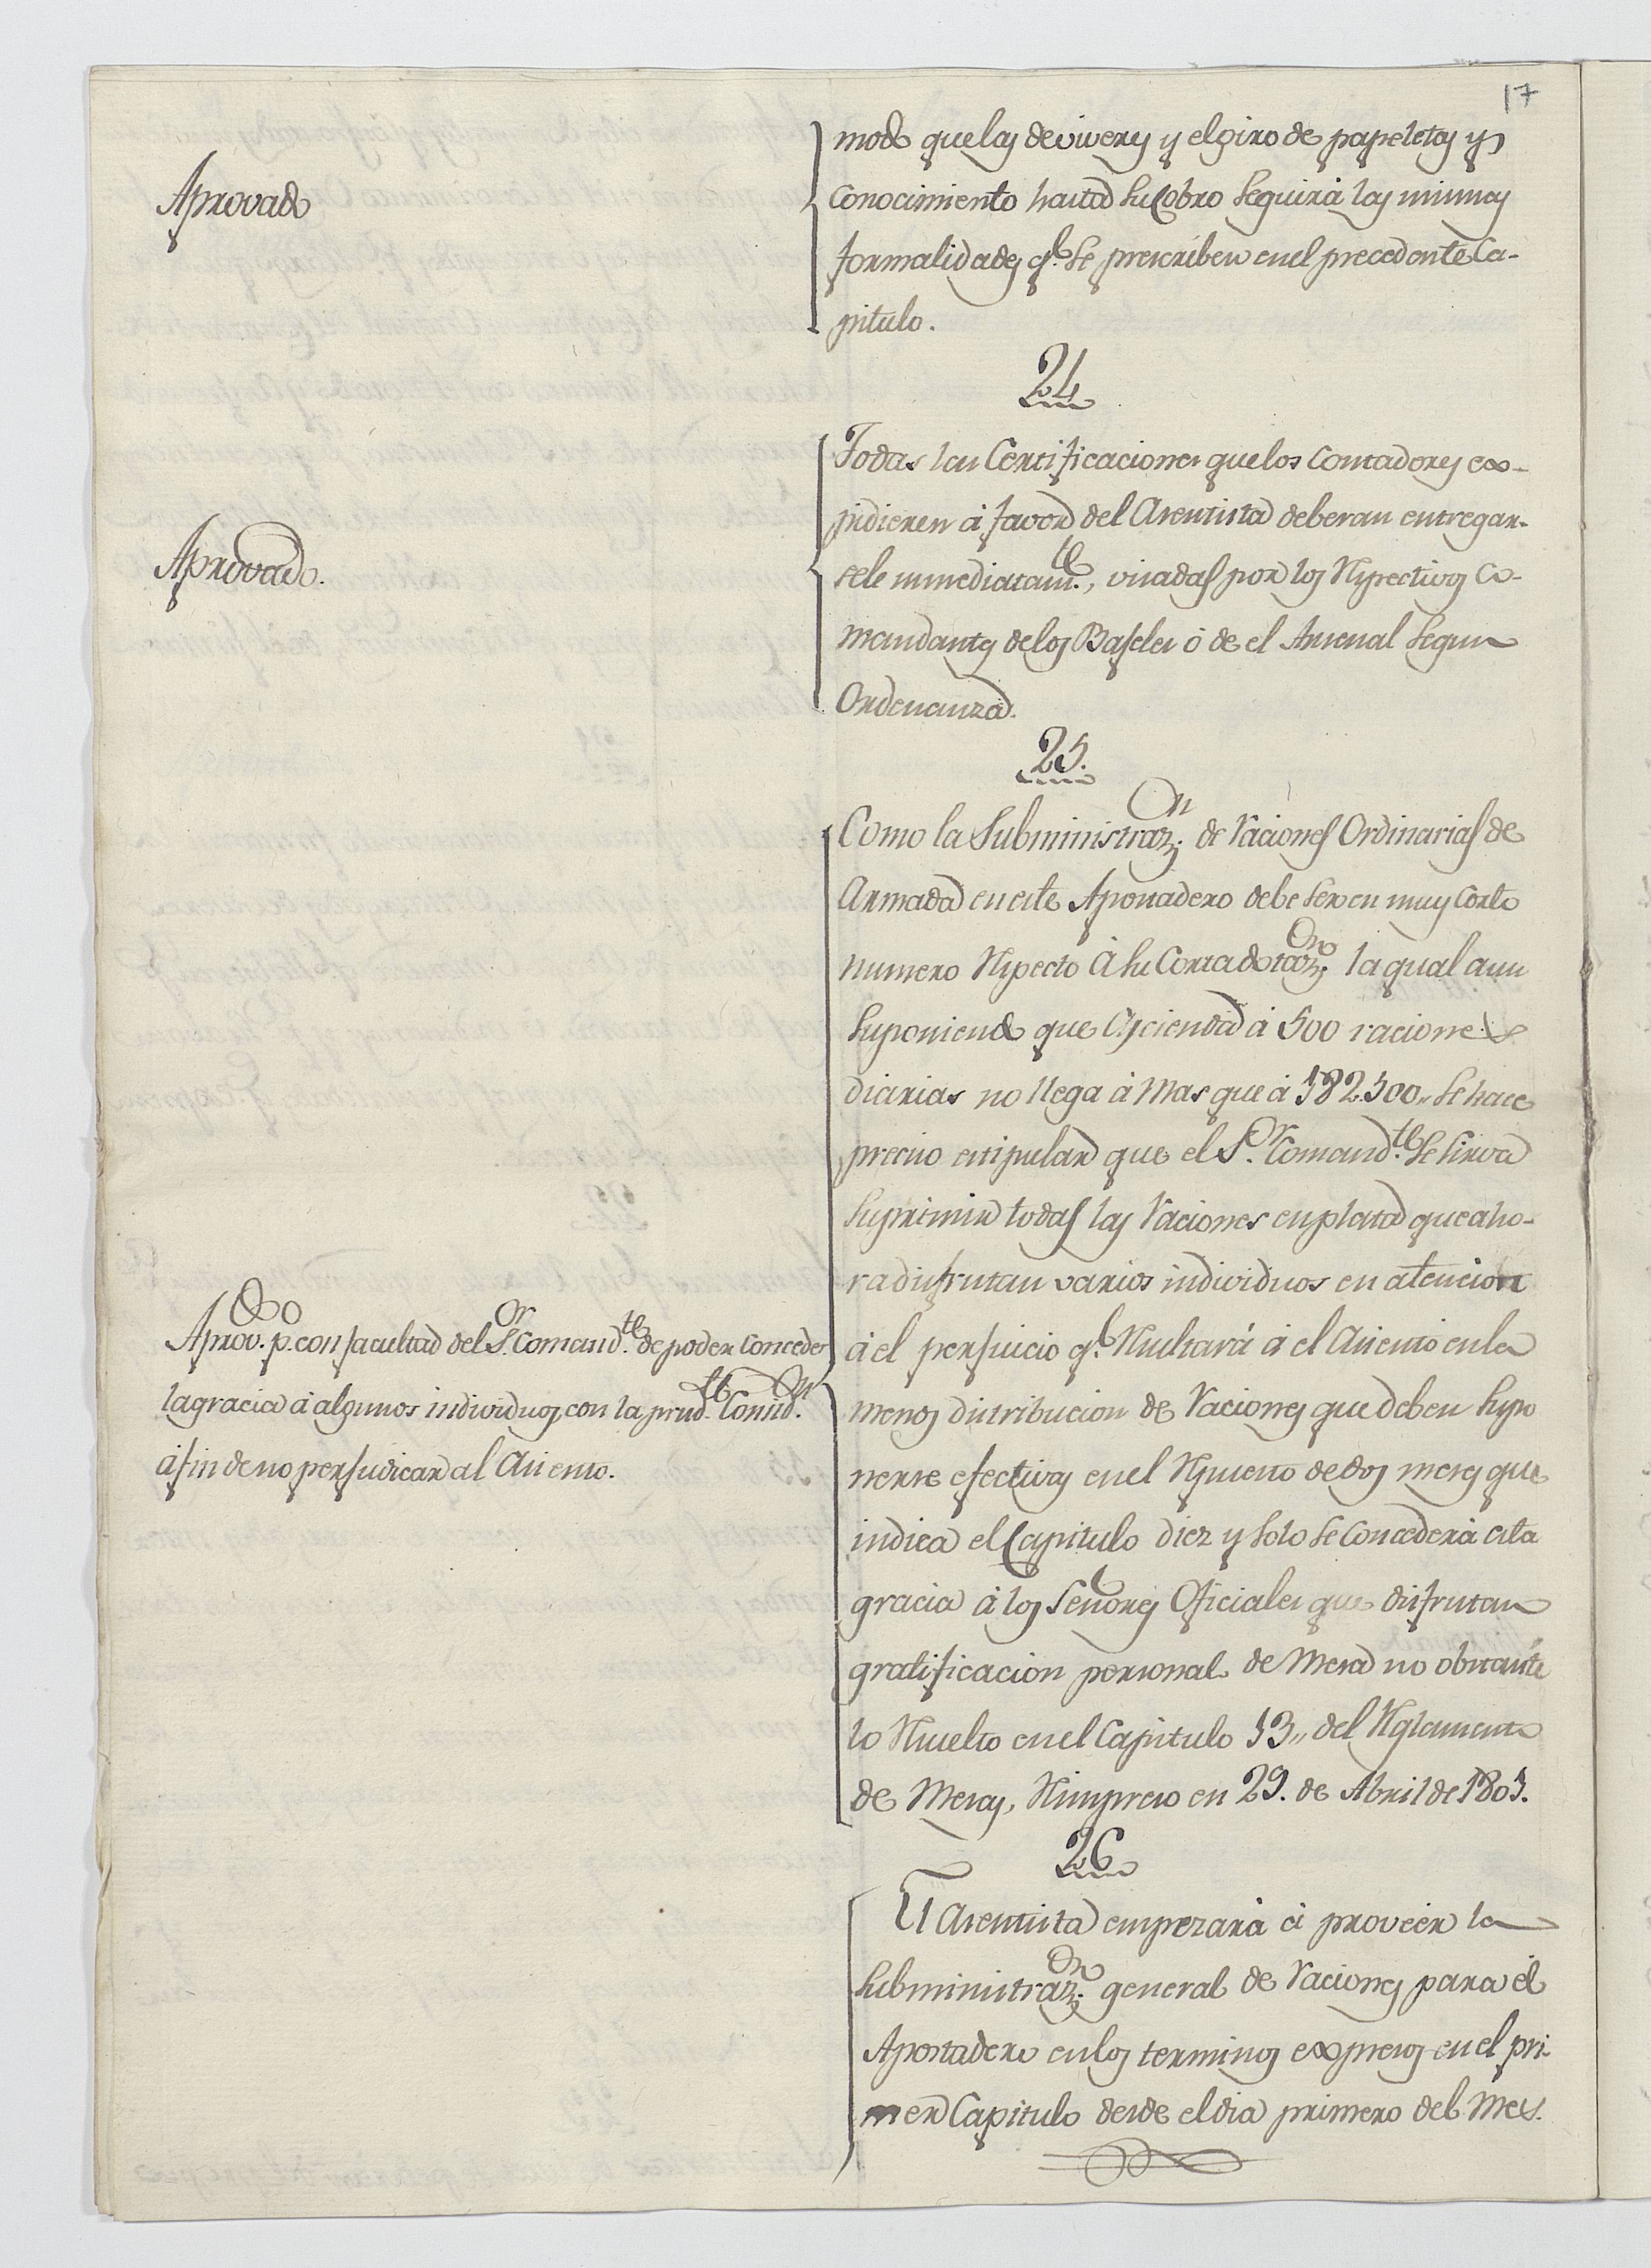 17
modo que las de viveres y el giro de papeletas y
Conocimiento hasta su Cobro seguirá las mismas
formalidades q.e se prescriben en el precedente Ca-
pitulo.
Aprovado
24
Todas las Certificaciones que los Contadores ex-
pidieren á favor del Asentista deberan entregar-
sele inmediatam.te, visadas por los Respectivos Co-
mandantes de los Baseles ó de el Arsenal segun
Ordenanza.
Aprovado.
25.
Como la Subministraz.on de Raciones Ordinarias de
Armada en este Apostadero debe ser en muy Corto
numero Respecto á su Corta dotaz.on la qual aun
suponiendo que Ascienda á 500 raciones
diarias no llega á mas que á 182.500,, se hace
preciso estipular que el S.or Comand.te se sirva
suprimir todas las Raciones en plata que aho-
ra disfrutan varios individuos en atencion
á el perjuicio q.e Resultará á el Asiento en la
menos distribucion de Raciones que deben supo
nerse efectivas en el Repuesto de dos meses que
indica el Capitulo diez y solo se Concederá esta
gracia á los Señores Oficiales que disfrutan
gratificacion personal de Mesa no obstante
lo Resuelto en el Capitulo 13,, del Reglamento
de Mesas, Reimpreso en 29. de Abril de 1803.
Aprov.do p.o con facultad del S.or Comand.te de poder Conceder
la gracia á algunos individuos con la prud.te Consid.on
á fin de no perjudicar al Asiento.
26
El Asentista empezará á proveér la
Subministraz.on general de Raciones para el
Apostadero en los terminos expresos en el pri-
mer Capitulo desde el dia primero del Mes.